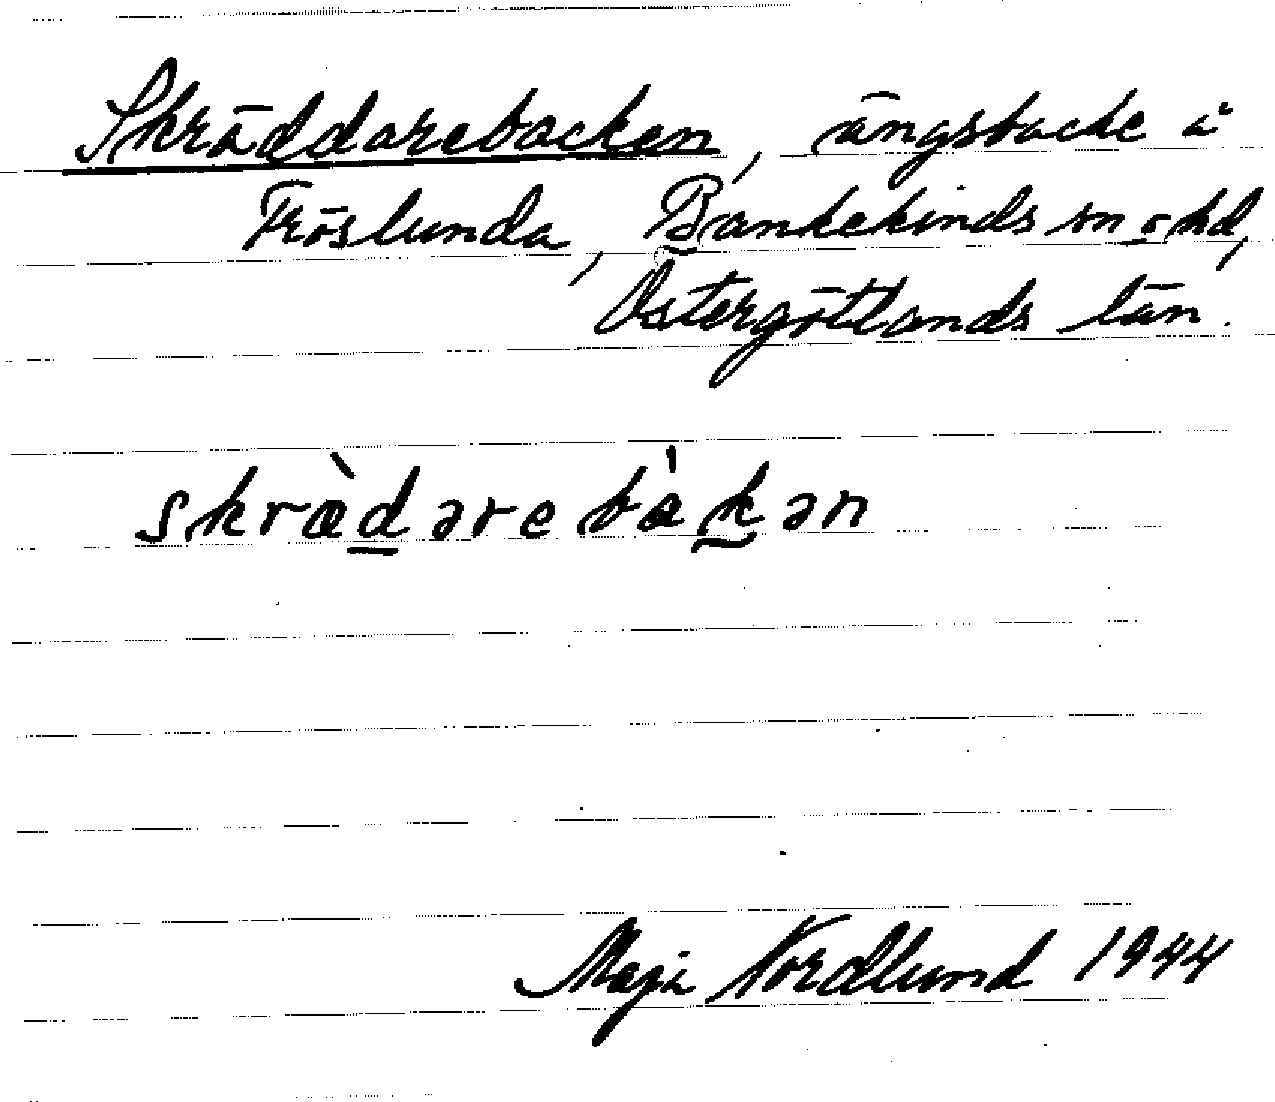 Skräddarebacken, ängsbacke å
Fröslunda, Bankekinds sn o hd,
Östergötlands län.
skræ̀d̲ərebàk̲ən
Maja Nordlund 1944